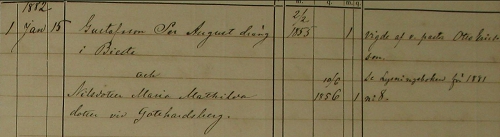 1882.
1 Jan. 15 Gustafsson Per August dräng 2/2 1853 1 vigde af v. past. Otto Erics-
i son.
och 10/0 se Lysningsboken för 1881
Nilsdotter Maria Mathilda 1856 1 n:o 8.
dotter vid Götehardsberg.